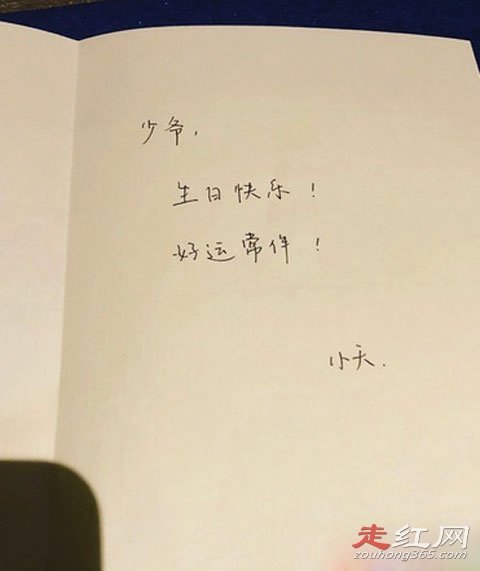 少爷,
生日快乐!
好运常伴!
小天.
走红网
zouhong365.com